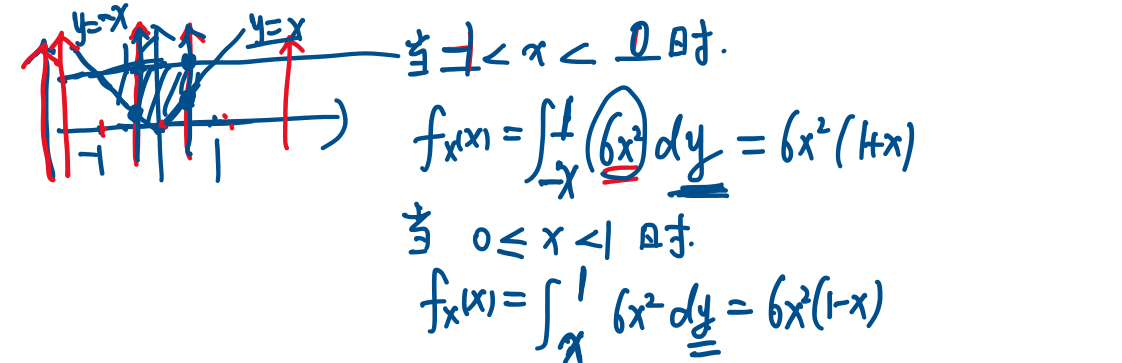 y=-x y=x
-1 1
当 -1 < x < 0 时.
f_X(x) = ∫_{-x}^{1} (6x²) dy = 6x²(1+x)
当 0 ≤ x < 1 时.
f_X(x) = ∫_{x}^{1} 6x² dy = 6x²(1-x)